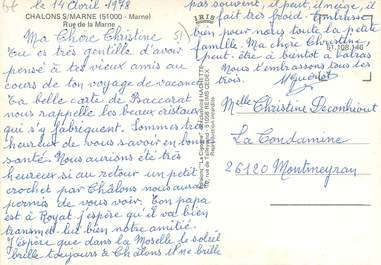 le 14 Avril 1978
CHALONS S/MARNE (51000 - Marne)
Rue de la Marne
Ma Chère Christine
Tu es très gentille d'avoir
pensé à tes vieux amis au
cours de ton voyage de vacances
Ta belle carte de Baccarat
nous rappelle les beaux cristaux
qui s'y fabriquent. Sommes très
heureux de vous savoir en bonne
santé. Nous aurions été très
heureux si au retour un petit
crochet par Châlons nous aurait
permis de vous voir. Ton papa
est à Royat j'espère qu'il va bien
transmet lui bien notre amitié.
J'espère que dans la Moselle le soleil
brille toujours à Châlons il ne brille
pas souvent, il pleut, il neige, il
fait très froid.
bien pour nous toute la petite
famille. Ma chère Christine,
peut-être à bientôt à
Nous t'embrassons tous les
trois.
IRIS
51.108.146
Melle Christine Deconhout
La Condamine
26120 Montmeyran